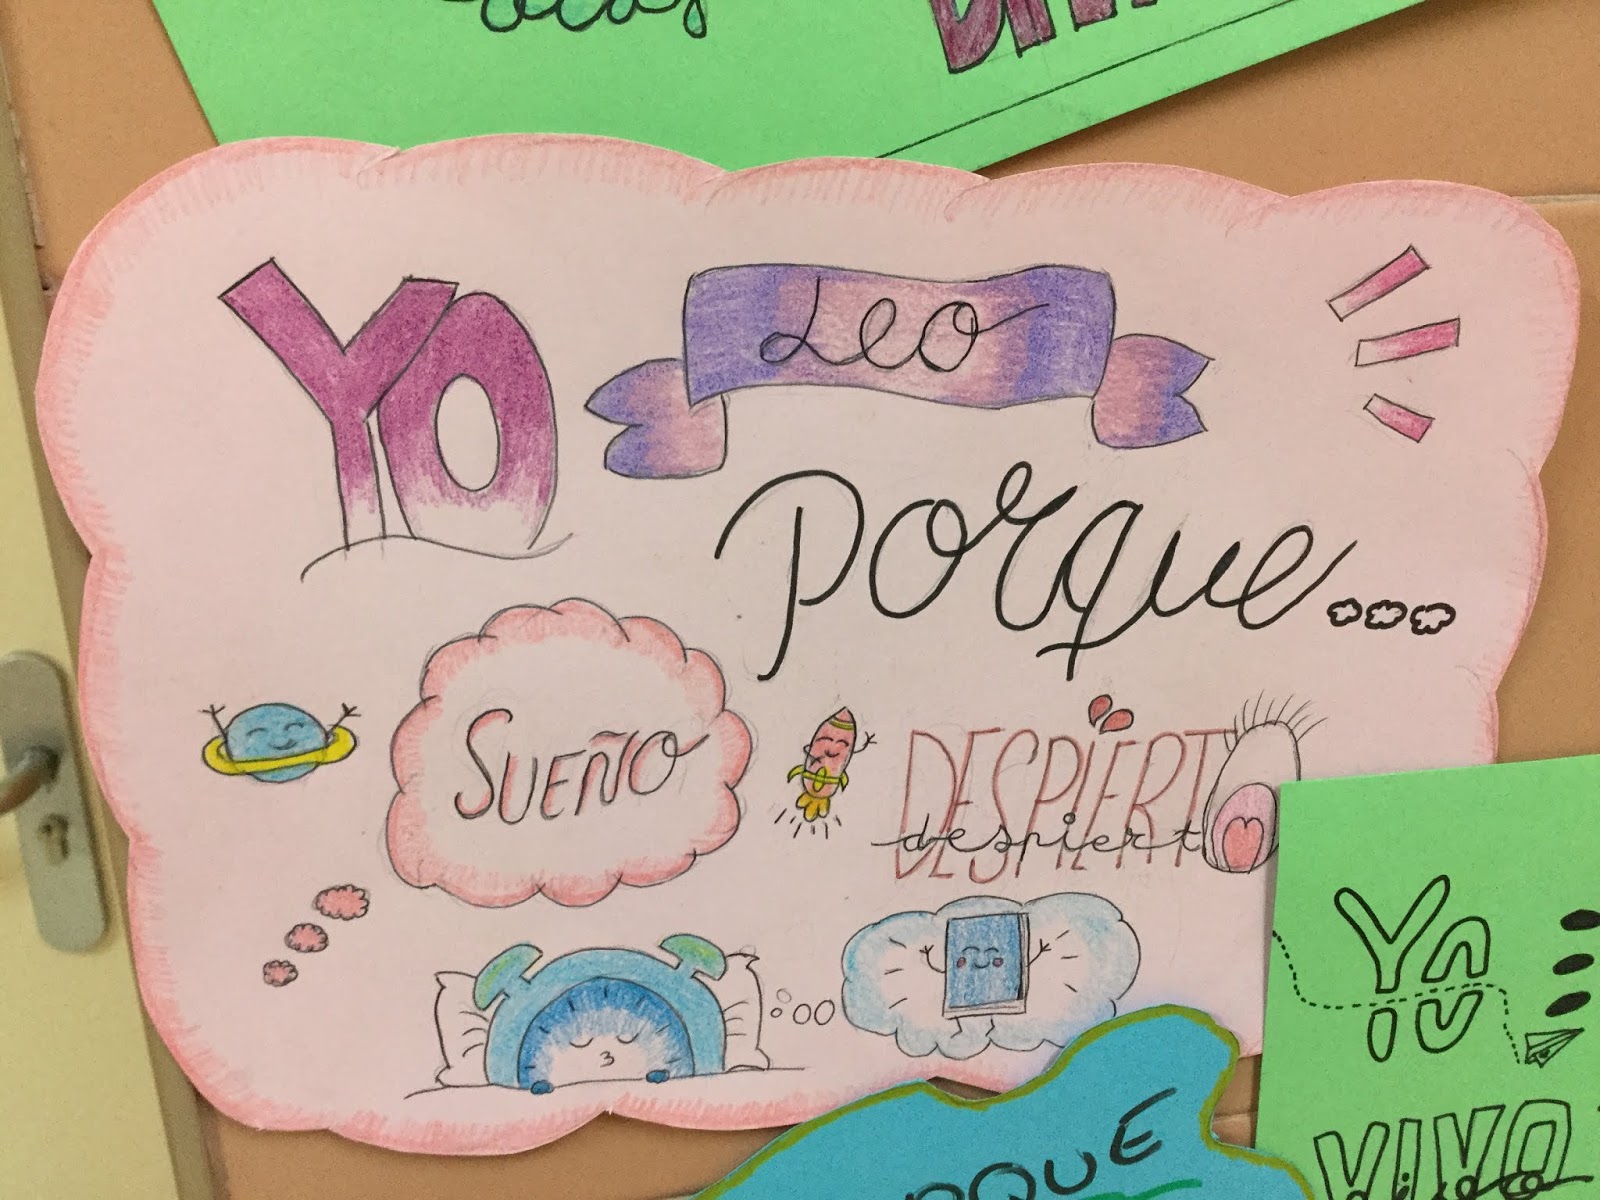 YO Leo
Porque...
SUEÑO
DESPIERTO
despierto
Yo
VIVO
PORQUE